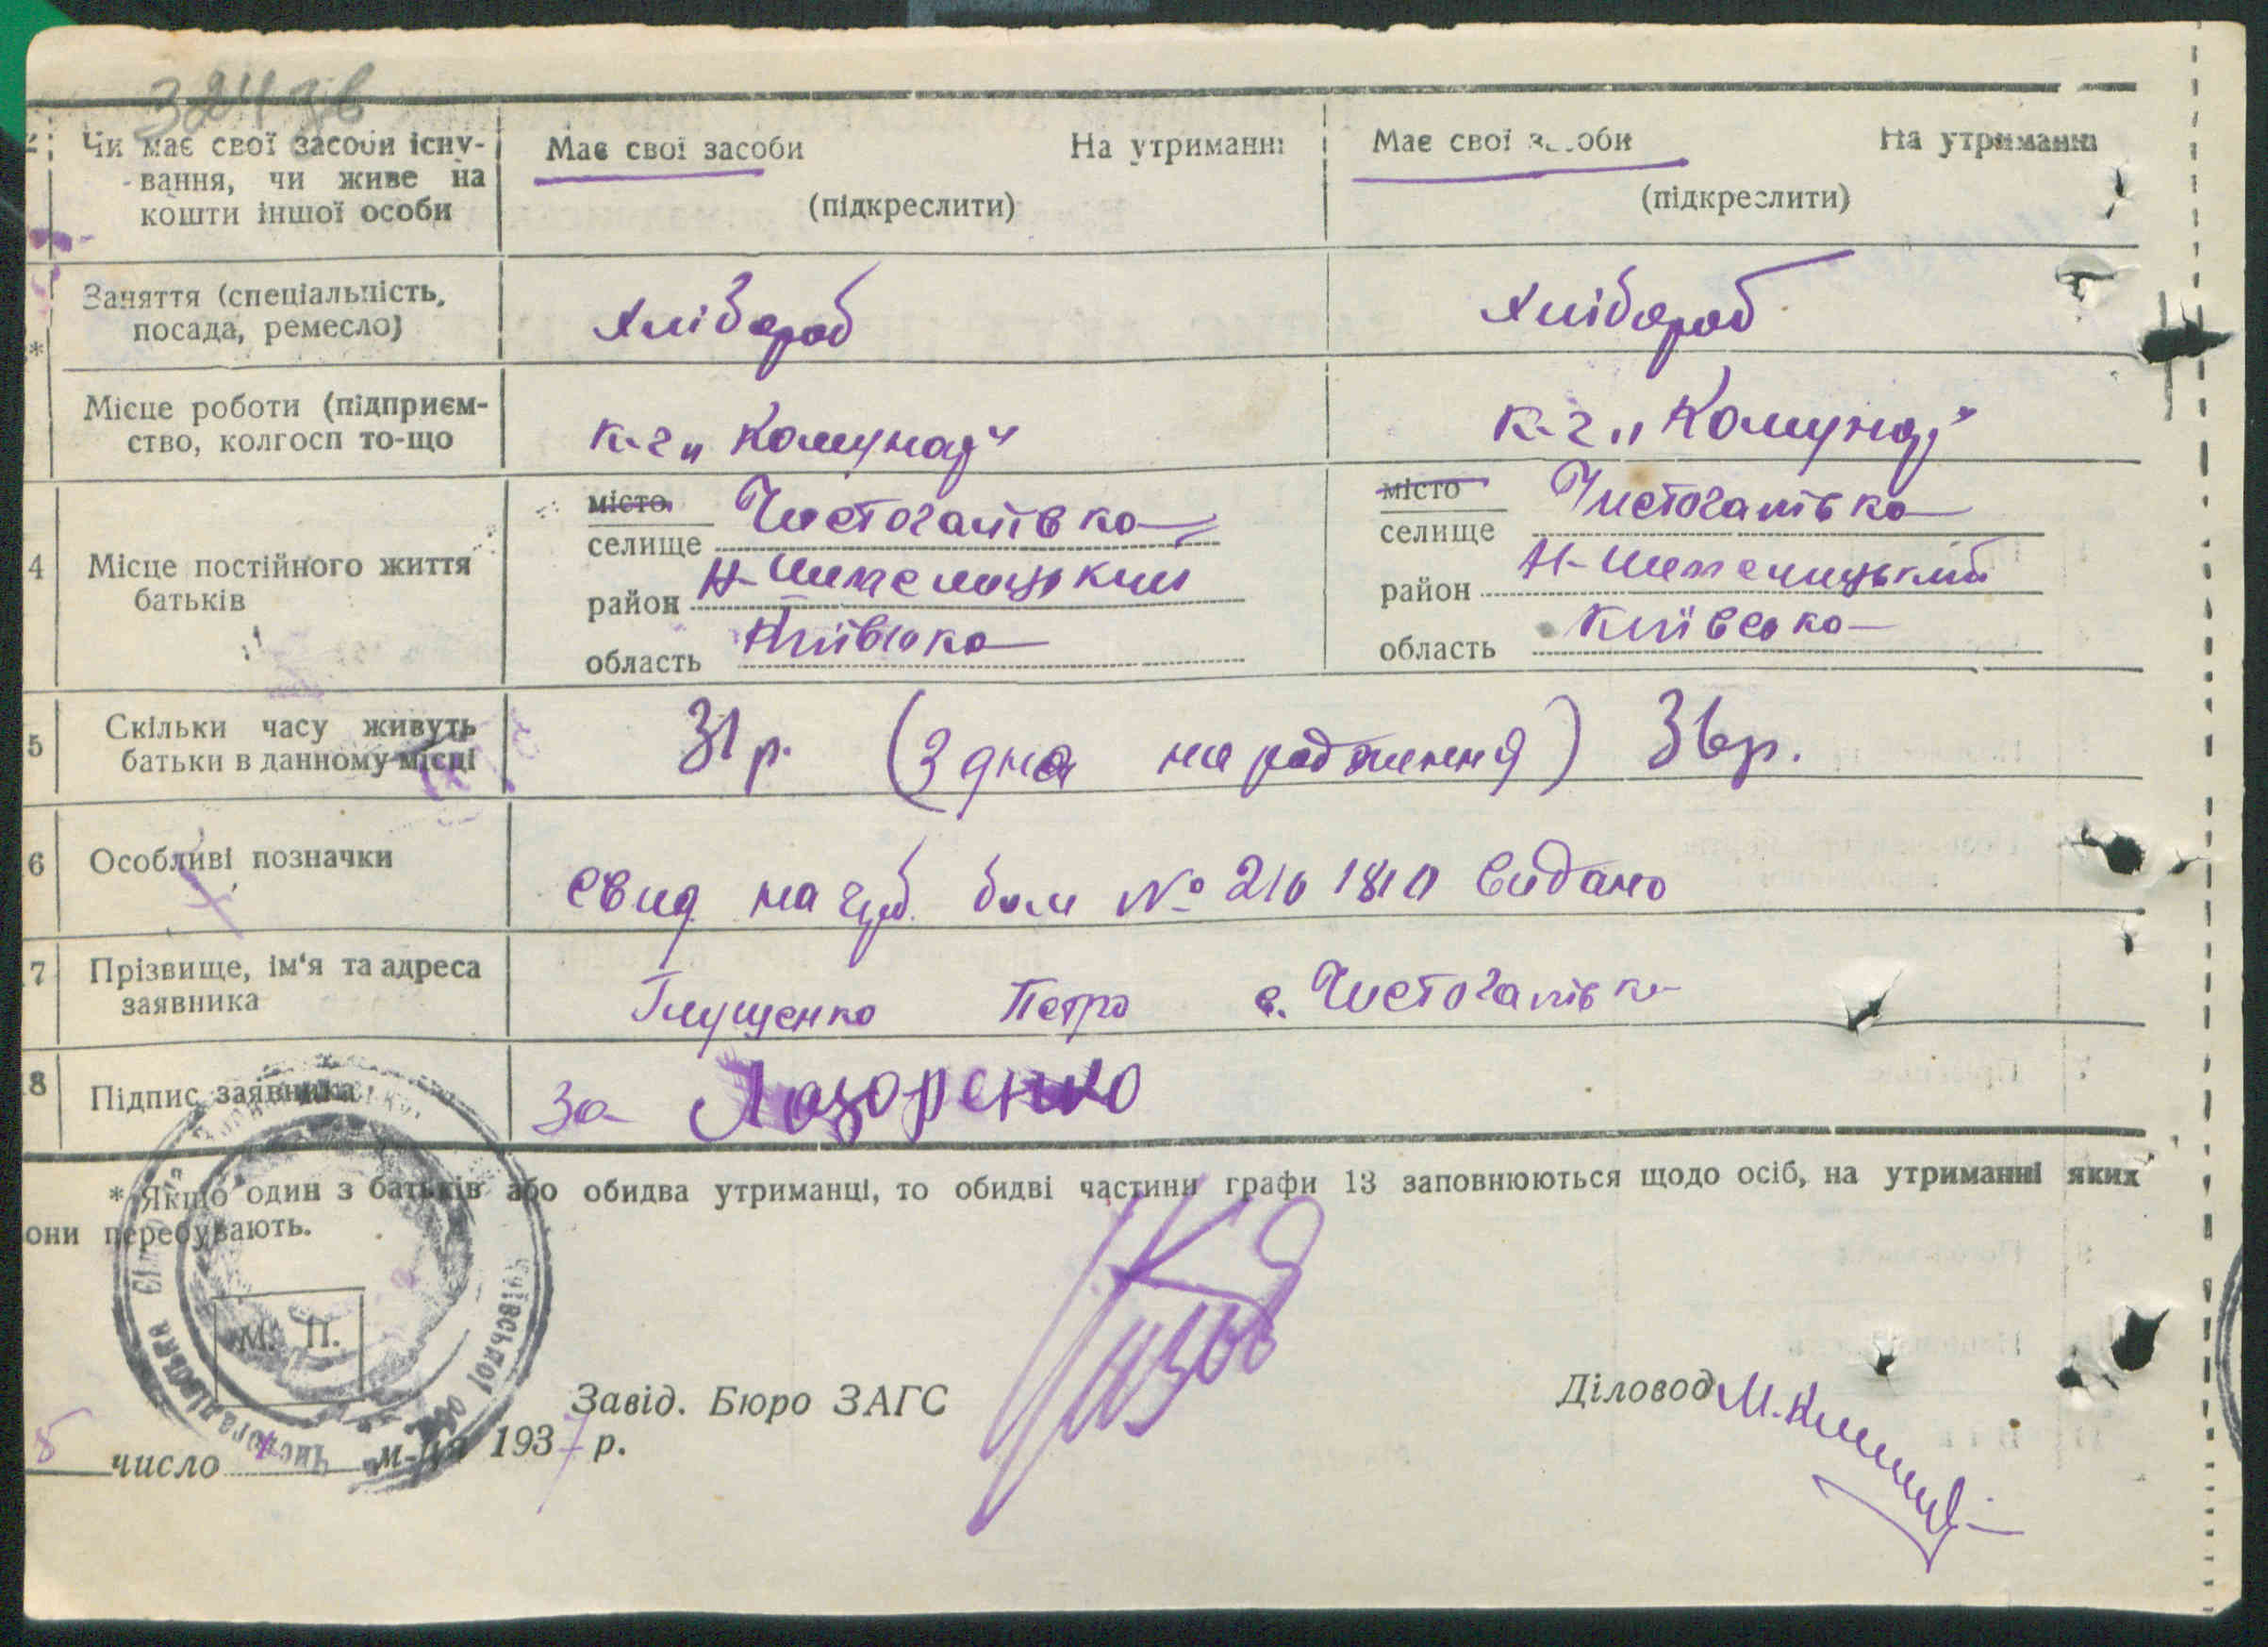 324 зв
Чи має свої засоби існу-
вання, чи живе на
кошти іншої особи
Має свої засоби На утриманні
(підкреслити)
Має свої засоби На утриманні
(підкреслити)
*
Заняття (спеціальність,
посада, ремесло)
Хлібороб
Хлібороб
Місце роботи (підприєм-
ство, колгосп то-що
к-г „Комунар"
к-г „Комунар"
4 Місце постійного життя
батьків
місто
селище Чистогалівка
район Н-Шепелицький
область Київська
місто
селище Чистогалівка
район Н-Шепелицький
область Київська
5 Скільки часу живуть
батьки в данному місці
31 р. (З дня народження) 36 р.
6 Особливі позначки
Свид на грб. бом № 210 1810 Видано
7 Прізвище, ім'я та адреса
заявника
Глущенко Петро с. Чистогалівка
8 Підпис заявника
За Лазоренко
* Якщо один з батьків або обидва утриманці, то обидві частини графи 13 заповнюються щодо осіб, на утриманні яких
они перебувають.
М. П.
Завід. Бюро ЗАГС
Діловод
5 число м-ця 1937 р.